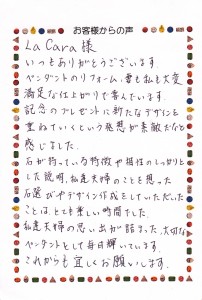 お客様からの声
La Cara 様
いつもありがとうございます
ペンダントのリフォーム、妻も私も大変
満足な仕上がりで喜んでいます
記念のプレゼントに新たなデザインを
重ねていくという発想が素敵だなと
感じました。
石が持っている特徴や相性のしっかりと
した説明、私達夫婦のことを想った
石選びやデザイン作成をしていただいた
ことは、とても楽しい時間でした
私達夫婦の思い出が詰まった大切な
ペンダントとして毎日輝いています。
これからも宜しくお願いします。